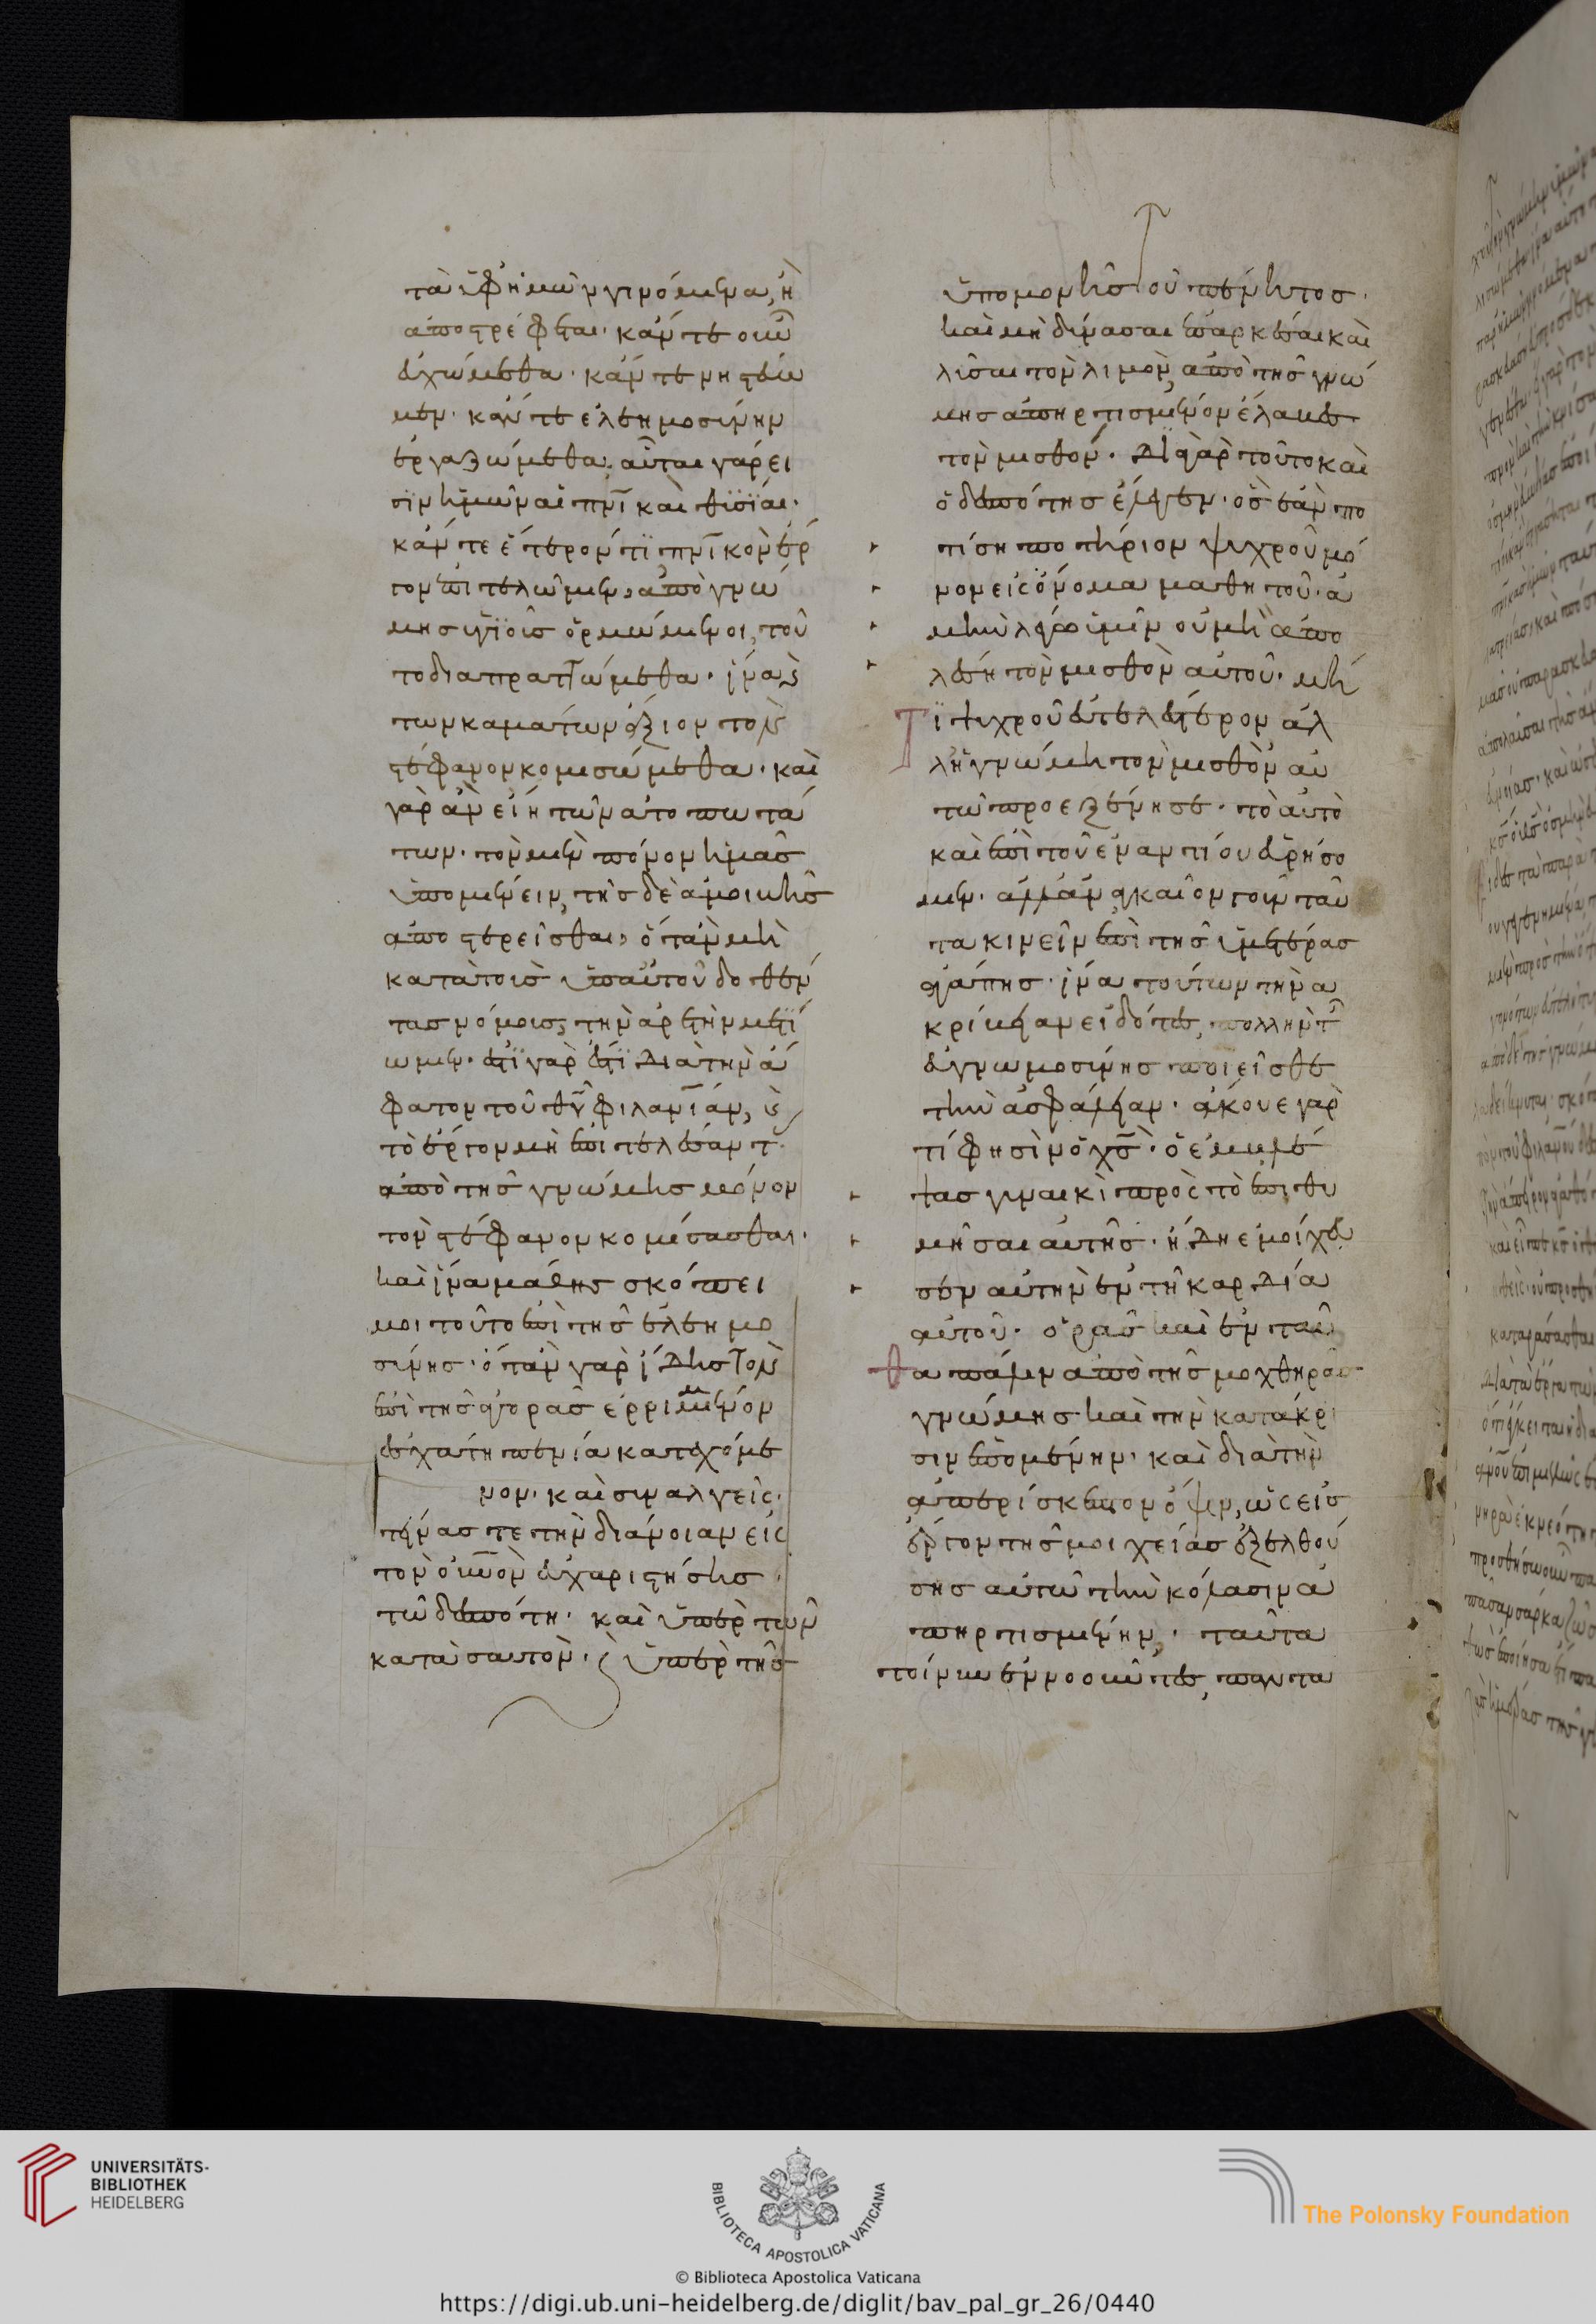 τὰ ὑφ' ἡμῶν γινόμενα, ἢ
ἀποστρέφεται· κάν τε οὖν
εὐχώμεθα· κάν τε νηστεύω
μεν· κάν τε ἐλεημοσύνην
ἐργαζώμεθα· αὗται γάρ εἰ
σϊν ἡμῶν αἱ πνϊ καὶ θυσΐαι·
κάν τε ἕτερόν τϊ πνϊκὸν ἔρ
γον ἐπιτελῶμεν, ἀπὸ γνώ
μης ὑγϊοῦς ὁρμώμενοι, τοῦ
το διαπραττώμεθα· ἵνα καὶ
τῶν καμάτων ἄξιον τὸν
στέφανον κομισώμεθα· καὶ
γὰρ ἂν εἴη τῶν ἀτοπωτά
των· τὸν μὲν πόνον ἡμᾶς
ὑπομένειν, τῆς δὲ ἀμοιβῆς
ἀποστερεῖσθαι, ὅταν μὴ
κατὰ τοὺς ὑπ' αὐτοῦ δοθέν
τας νόμους, τὴν ἀρετὴν μετΐ
ωμεν· ἔτϊ γὰρ ἔτϊ διὰ τὴν ἄ
φατον τοῦ θυ φιλανΐαν, καὶ
τὸ ἔργον μὴ ἐπιτελέσαντ
ἀπὸ τῆς γνώμης μόνον
τὸν στέφανον κομίσασθαι·
καὶ ἵνα μάθης σκόπει
μοι τοῦτο ἐπὶ τῆς ἐλεημο
σύνης· ὅταν γὰρ ἴδης τὸν
ἐπὶ τῆς ἀγορᾶς ἐρριμμένον
ἐσχάτη πενία κατεχόμε
νον· καὶ συναλγεῖς·
τείνας τε τὴν διάνοιαν εἰς
τὸν οὐνὸν εὐχαριστήσης
τῷ δεσπότη· καὶ ὑπὲρ τῶν
κατὰ σαυτὸν· καὶ ὑπὲρ τῆς
ὑπομονῆς τοῦ πένητος·
καὶ μὴ δύνασαι ἐπαρκέσαι καὶ
λῦσαι τὸν λιμόν, ἀπὸ τῆς γνώ
μης ἀπηρτισμένον ἔλαβες
τὸν μισθόν· διὰ γὰρ τοῦτο καὶ
ὁ δεσπότης ἔλεγεν· ὃς ἐὰν πο
τίση ποτήριον ψυχροῦ μό
νον εἰς ὄνομα μαθητοῦ· ἀ
μὴν λέγω ὑμῖν οὐ μὴ ἀπο
λέση τὸν μισθὸν αὐτοῦ· μὴ
Τϊ ψυχροῦ εὐτελέστερον ἀλ
λ' ἡ γνώμη τὸν μισθὸν αὐ
τῷ προεξένησε· τὸ αὐτὸ
καὶ ἐπὶ τοῦ ἐναντίου εὑρήσο
μεν· ἀλλ' ἀναγκαῖον γοῦν ταῦ
τα κινεῖν ἐπὶ τῆς ὑμετέρας
ἀγάπης· ἵνα τούτων τὴν ἀ
κρίβειαν εἰδότες, πολλὴν τ
εὐγνωμοσύνης ποιεῖσθε
τὴν ἀσφάλειαν· ἄκουε γὰρ
τί φησὶν ὁ χς· ὁ ἐμβλέ
ψας γυναικὶ πρὸς τὸ ἐπιθυ
μῆσαι αὐτῆς· ἤδη ἐμοίχευ
σεν αὐτὴν ἐν τῆ καρδία
αὐτοῦ· ὁρᾶς καὶ ἐνταῦ
θα πάλιν ἀπὸ τῆς μοχθηρᾶς
γνώμης καὶ τὴν κατάκρι
σιν ἑπομένην· καὶ διὰ τὴν
ἀπερίσκεπτον ὄψιν, ὡς εἰς
ἔργον τῆς μοιχείας ἐξελθού
σης αὐτῷ τὴν κόλασιν ἀ
πηρτισμένην· ταῦτα
τοίνυν ἐννοοῦντες, πάντα